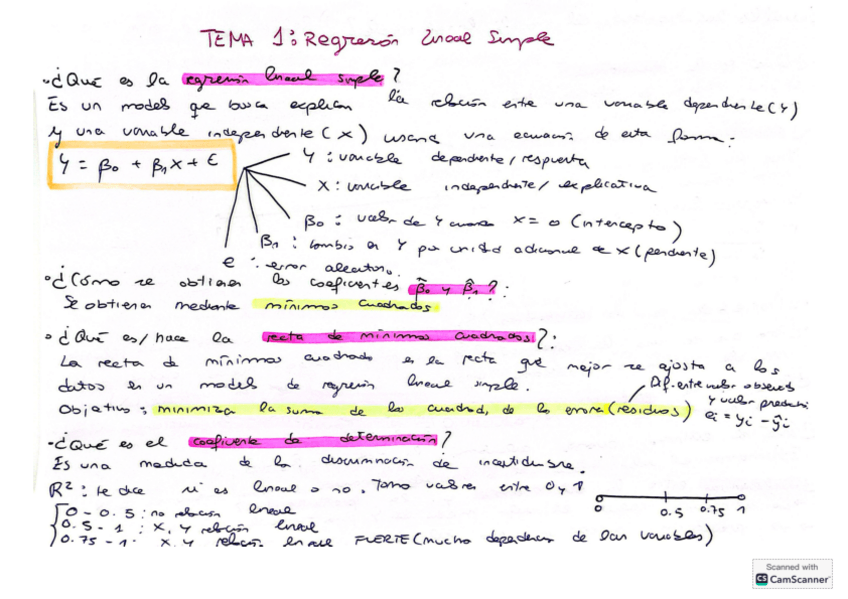 TEMA 1: Regresión lineal simple
• ¿Qué es la regresión lineal simple?
Es un modelo que busca explicar la relación entre una variable dependiente (Y)
y una variable independiente (X) usando una ecuación de esta forma:
Y = β₀ + β₁X + ε
Y: variable dependiente/respuesta
X: variable independiente/explicativa
β₀: valor de Y cuando X = 0 (intercepto)
β₁: cambio en Y por unidad adicional de X (pendiente)
e: error aleatorio.
• ¿Cómo se obtienen los coeficientes β̂₀ y β̂₁?:
Se obtienen mediante mínimos cuadrados
• ¿Qué es/hace la recta de mínimos cuadrados?:
La recta de mínimos cuadrado es la recta que mejor se ajusta a los
datos en un modelo de regresión lineal simple.
Dif. entre valor observado
y valor predicho
Objetivo: minimiza la suma de los cuadrad. de lo errores (residuos) eᵢ = yᵢ - ŷᵢ
- ¿Qué es el coeficiente de determinación?
Es una medida de la discriminación de incertidumbre.
R²: te dice si es lineal o no. Toma valores entre 0 y 1
0 0.5 0.75 1
0 - 0.5: no relación lineal
0.5 - 1: X, Y relación lineal
0.75 - 1: X, Y relación lineal FUERTE (mucho dependen de las variables)
Scanned with
CS CamScanner